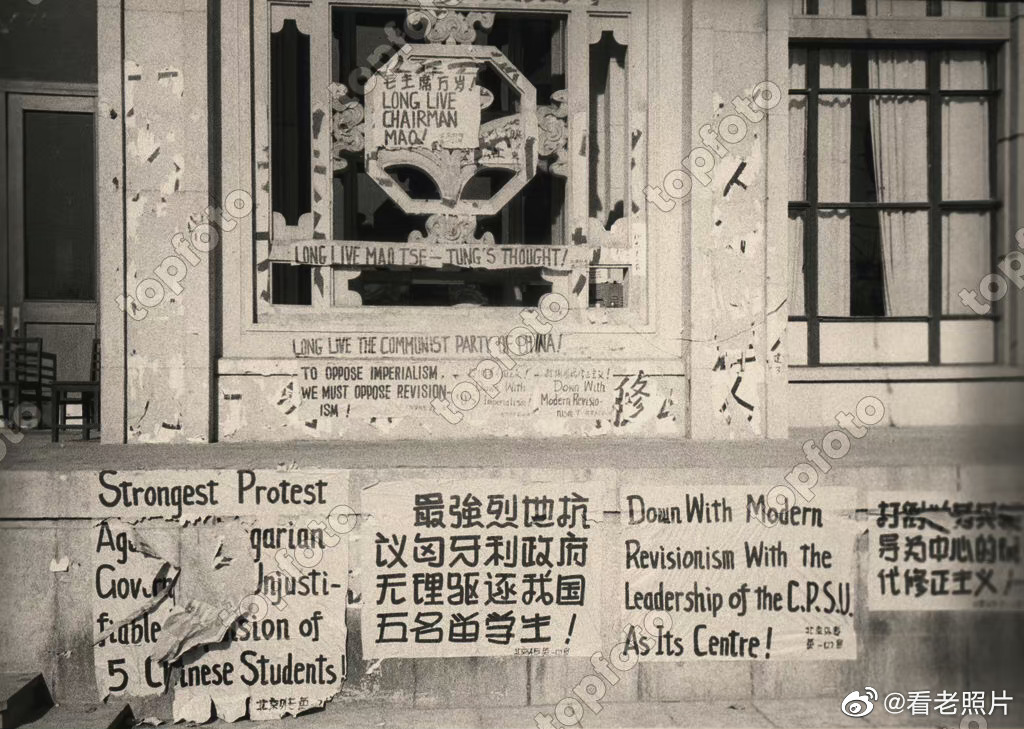 毛主席万岁!
LONG LIVE
CHAIRMAN
MAO!
LONG LIVE MAO TSE-TUNG'S THOUGHT!
LONG LIVE THE COMMUNIST PARTY OF CHINA!
TO OPPOSE IMPERIALISM
WE MUST OPPOSE REVISION-
ISM!
Down With
Imperialism!
Down With
Modern Revisio-
nism
修
Strongest Protest
garian
Gov
Injusti-
fiable sion of
5 Chinese Students!
最強烈地抗
议匈牙利政府
无理驱逐我国
五名留学生!
Down With Modern
Revisionism With the
Leadership of the C.P.S.U.
As Its Centre!
导为中心的
代修正主义!
topfoto
@看老照片